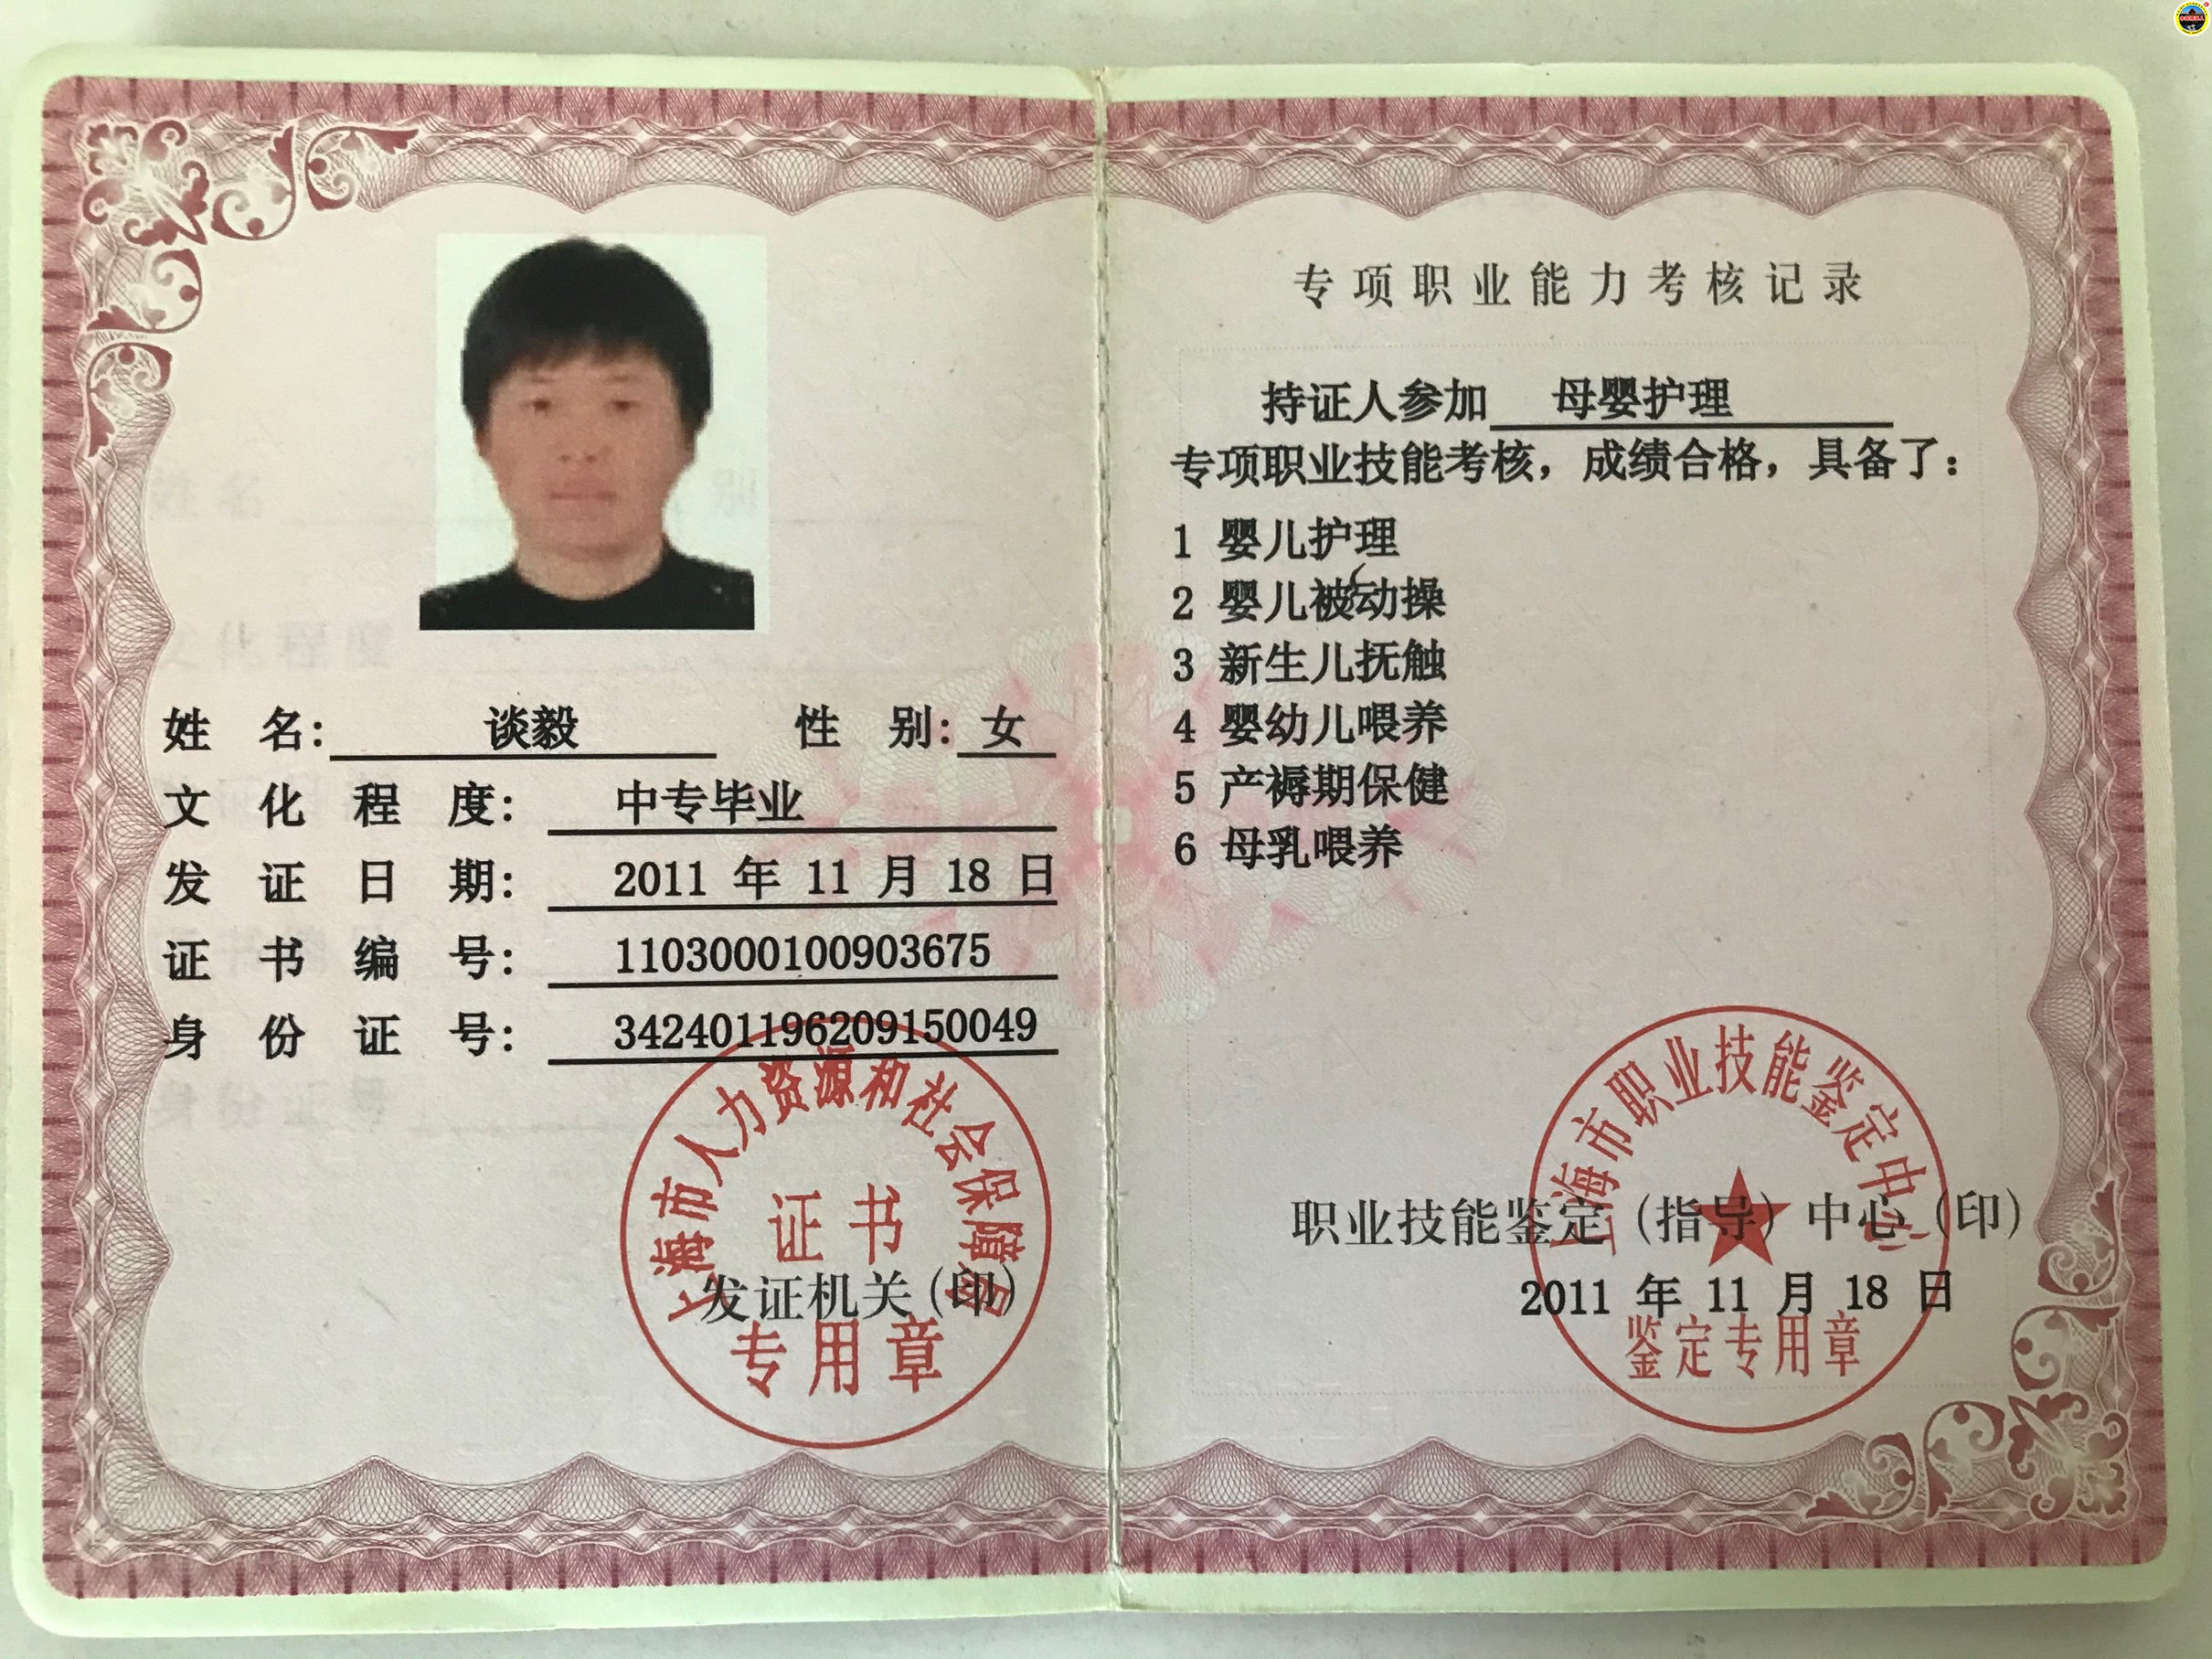 姓 名: 谈毅 性 别: 女
文 化 程 度: 中专毕业
发 证 日 期: 2011 年 11 月 18 日
证 书 编 号: 1103000100903675
身 份 证 号: 342401196209150049
上海市人力资源和社会保障局
证书
发证机关(印)
专用章
专项职业能力考核记录
持证人参加 母婴护理
专项职业技能考核，成绩合格，具备了：
1 婴儿护理
2 婴儿被动操
3 新生儿抚触
4 婴幼儿喂养
5 产褥期保健
6 母乳喂养
上海市职业技能鉴定中心
职业技能鉴定（指导）中心（印）
2011 年 11 月 18 日
鉴定专用章